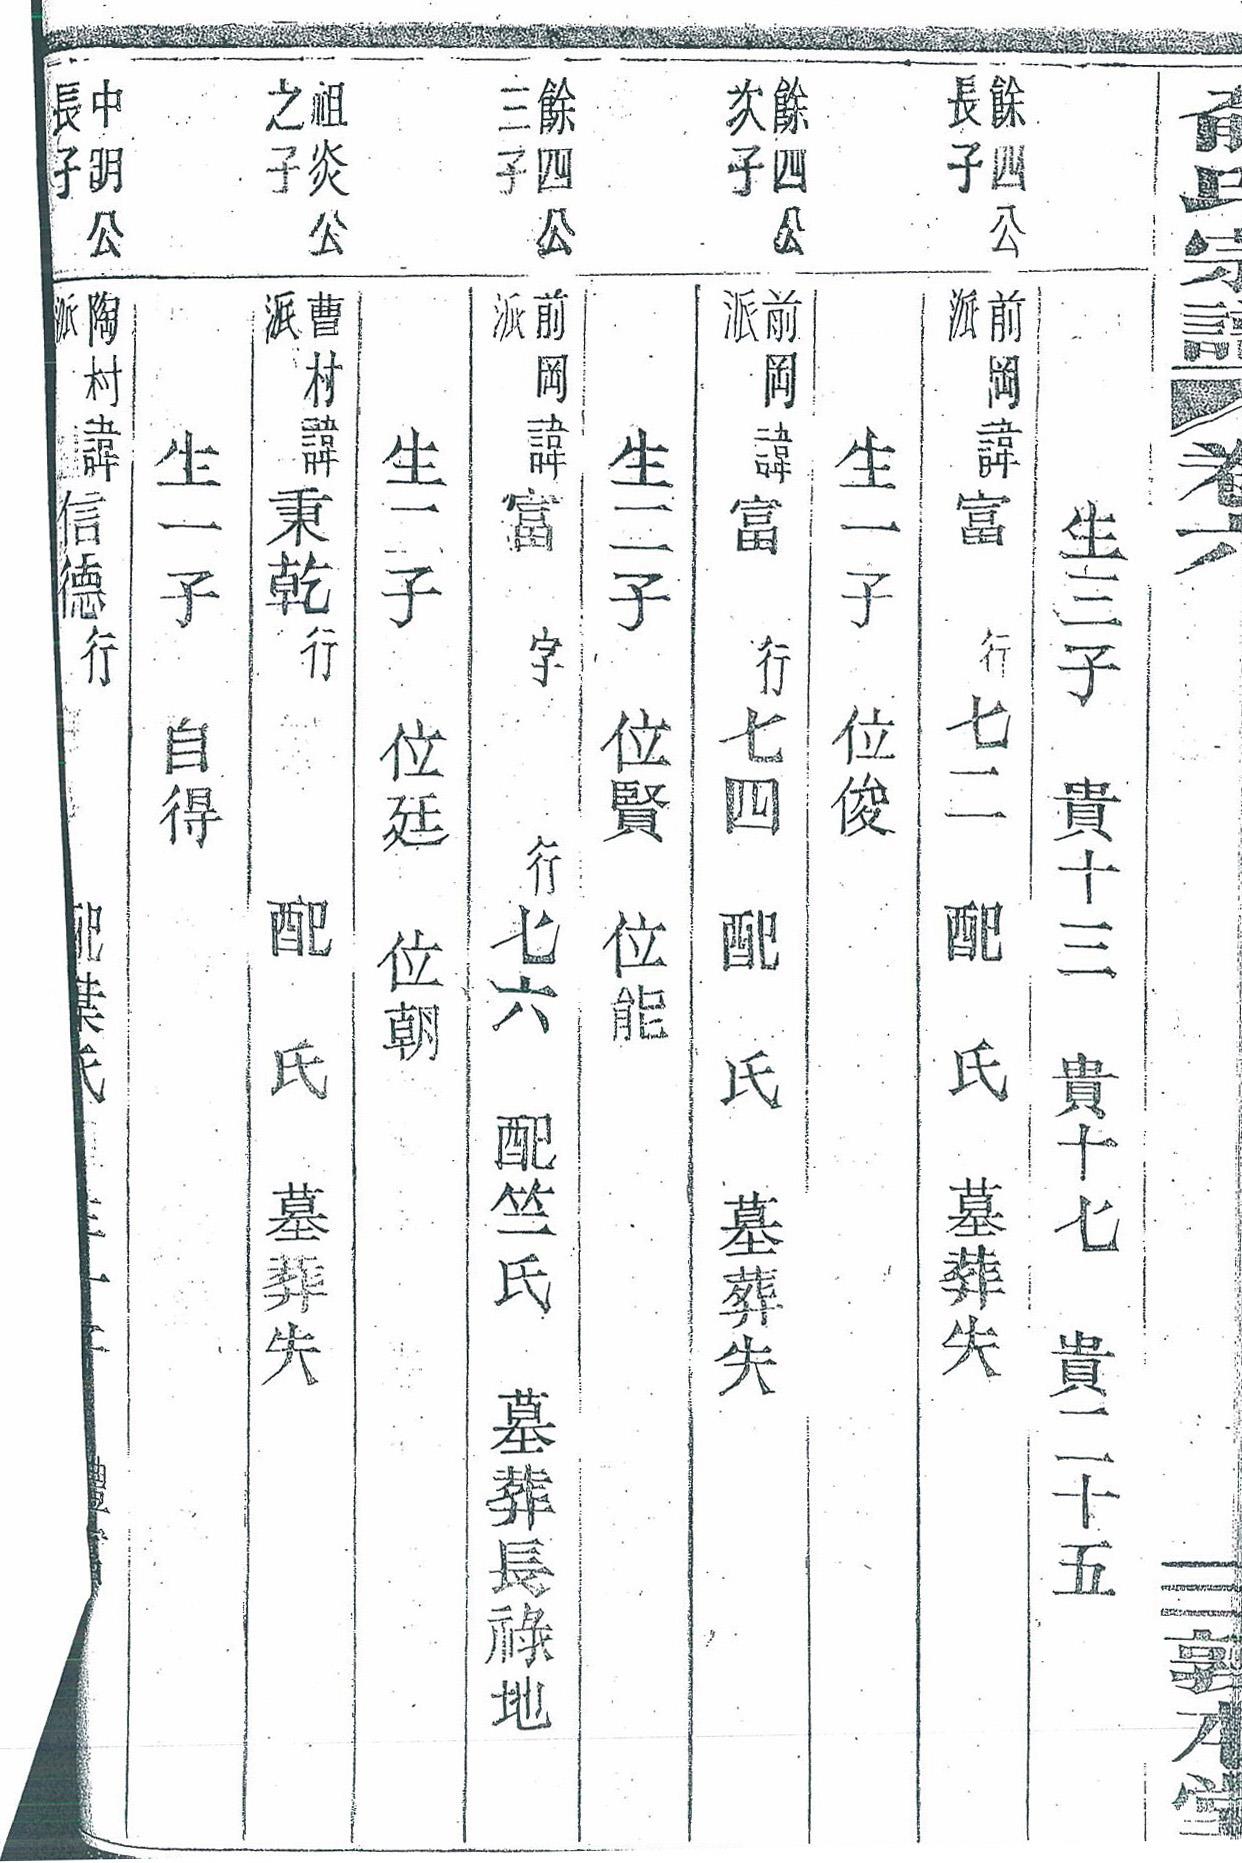 氏宗譜 卷六 三 敦本堂
生三子 貴十三 貴十七 貴二十五
餘四公長子 前岡派諱富 行七二 配 氏 墓葬失
生一子 位俊
餘四公次子 前岡派諱富 行七四 配 氏 墓葬失
生二子 位賢 位能
餘四公三子 前岡派諱富 字 行七六 配竺氏 墓葬長祿地
生二子 位廷 位朝
祖炎公之子 曹村派諱秉乾 行 配 氏 墓葬失
生一子 自得
中明公長子 陶村派諱信德 行 配葉氏 生一子